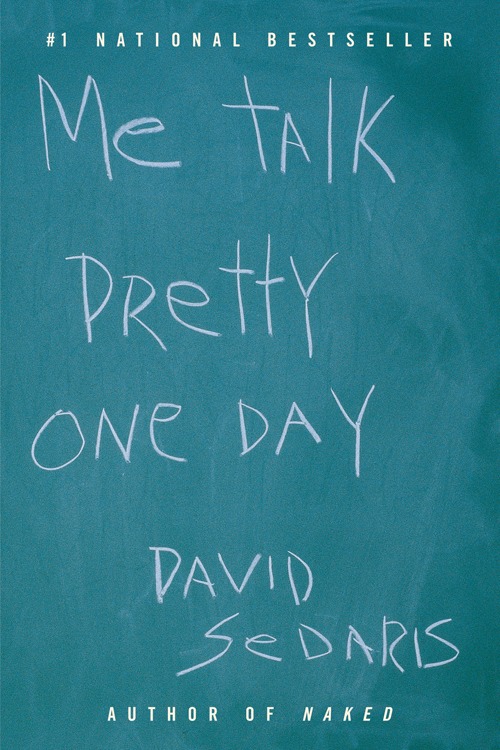 #1 NATIONAL BESTSELLER
Me tAlK
PRetty
ONe DAY
DAVID
SeDARIS
AUTHOR OF NAKED